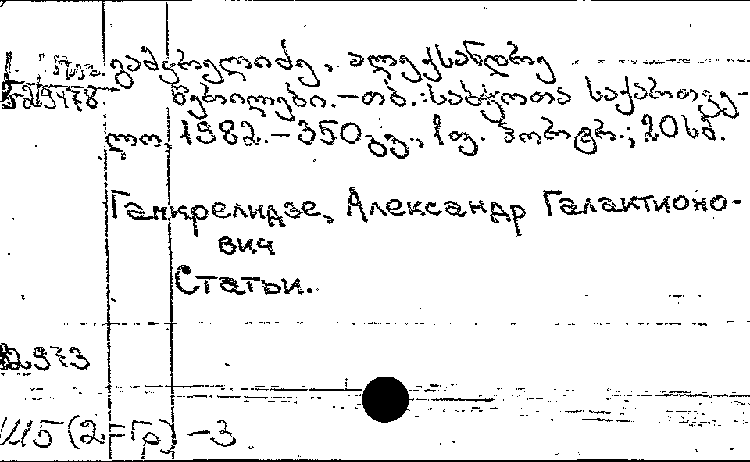 გამკრელიძე, ალექსანდრე
529478. წერილები.-თბ.:საბჭოთა საქართვე-
ლო, 1982.-350გვ., 1ფ. პორტრ.; 20სმ.
Гамкрелидзе, Александр Галактионо-
вич
Статьи.
Ш5(2=Гр)-3